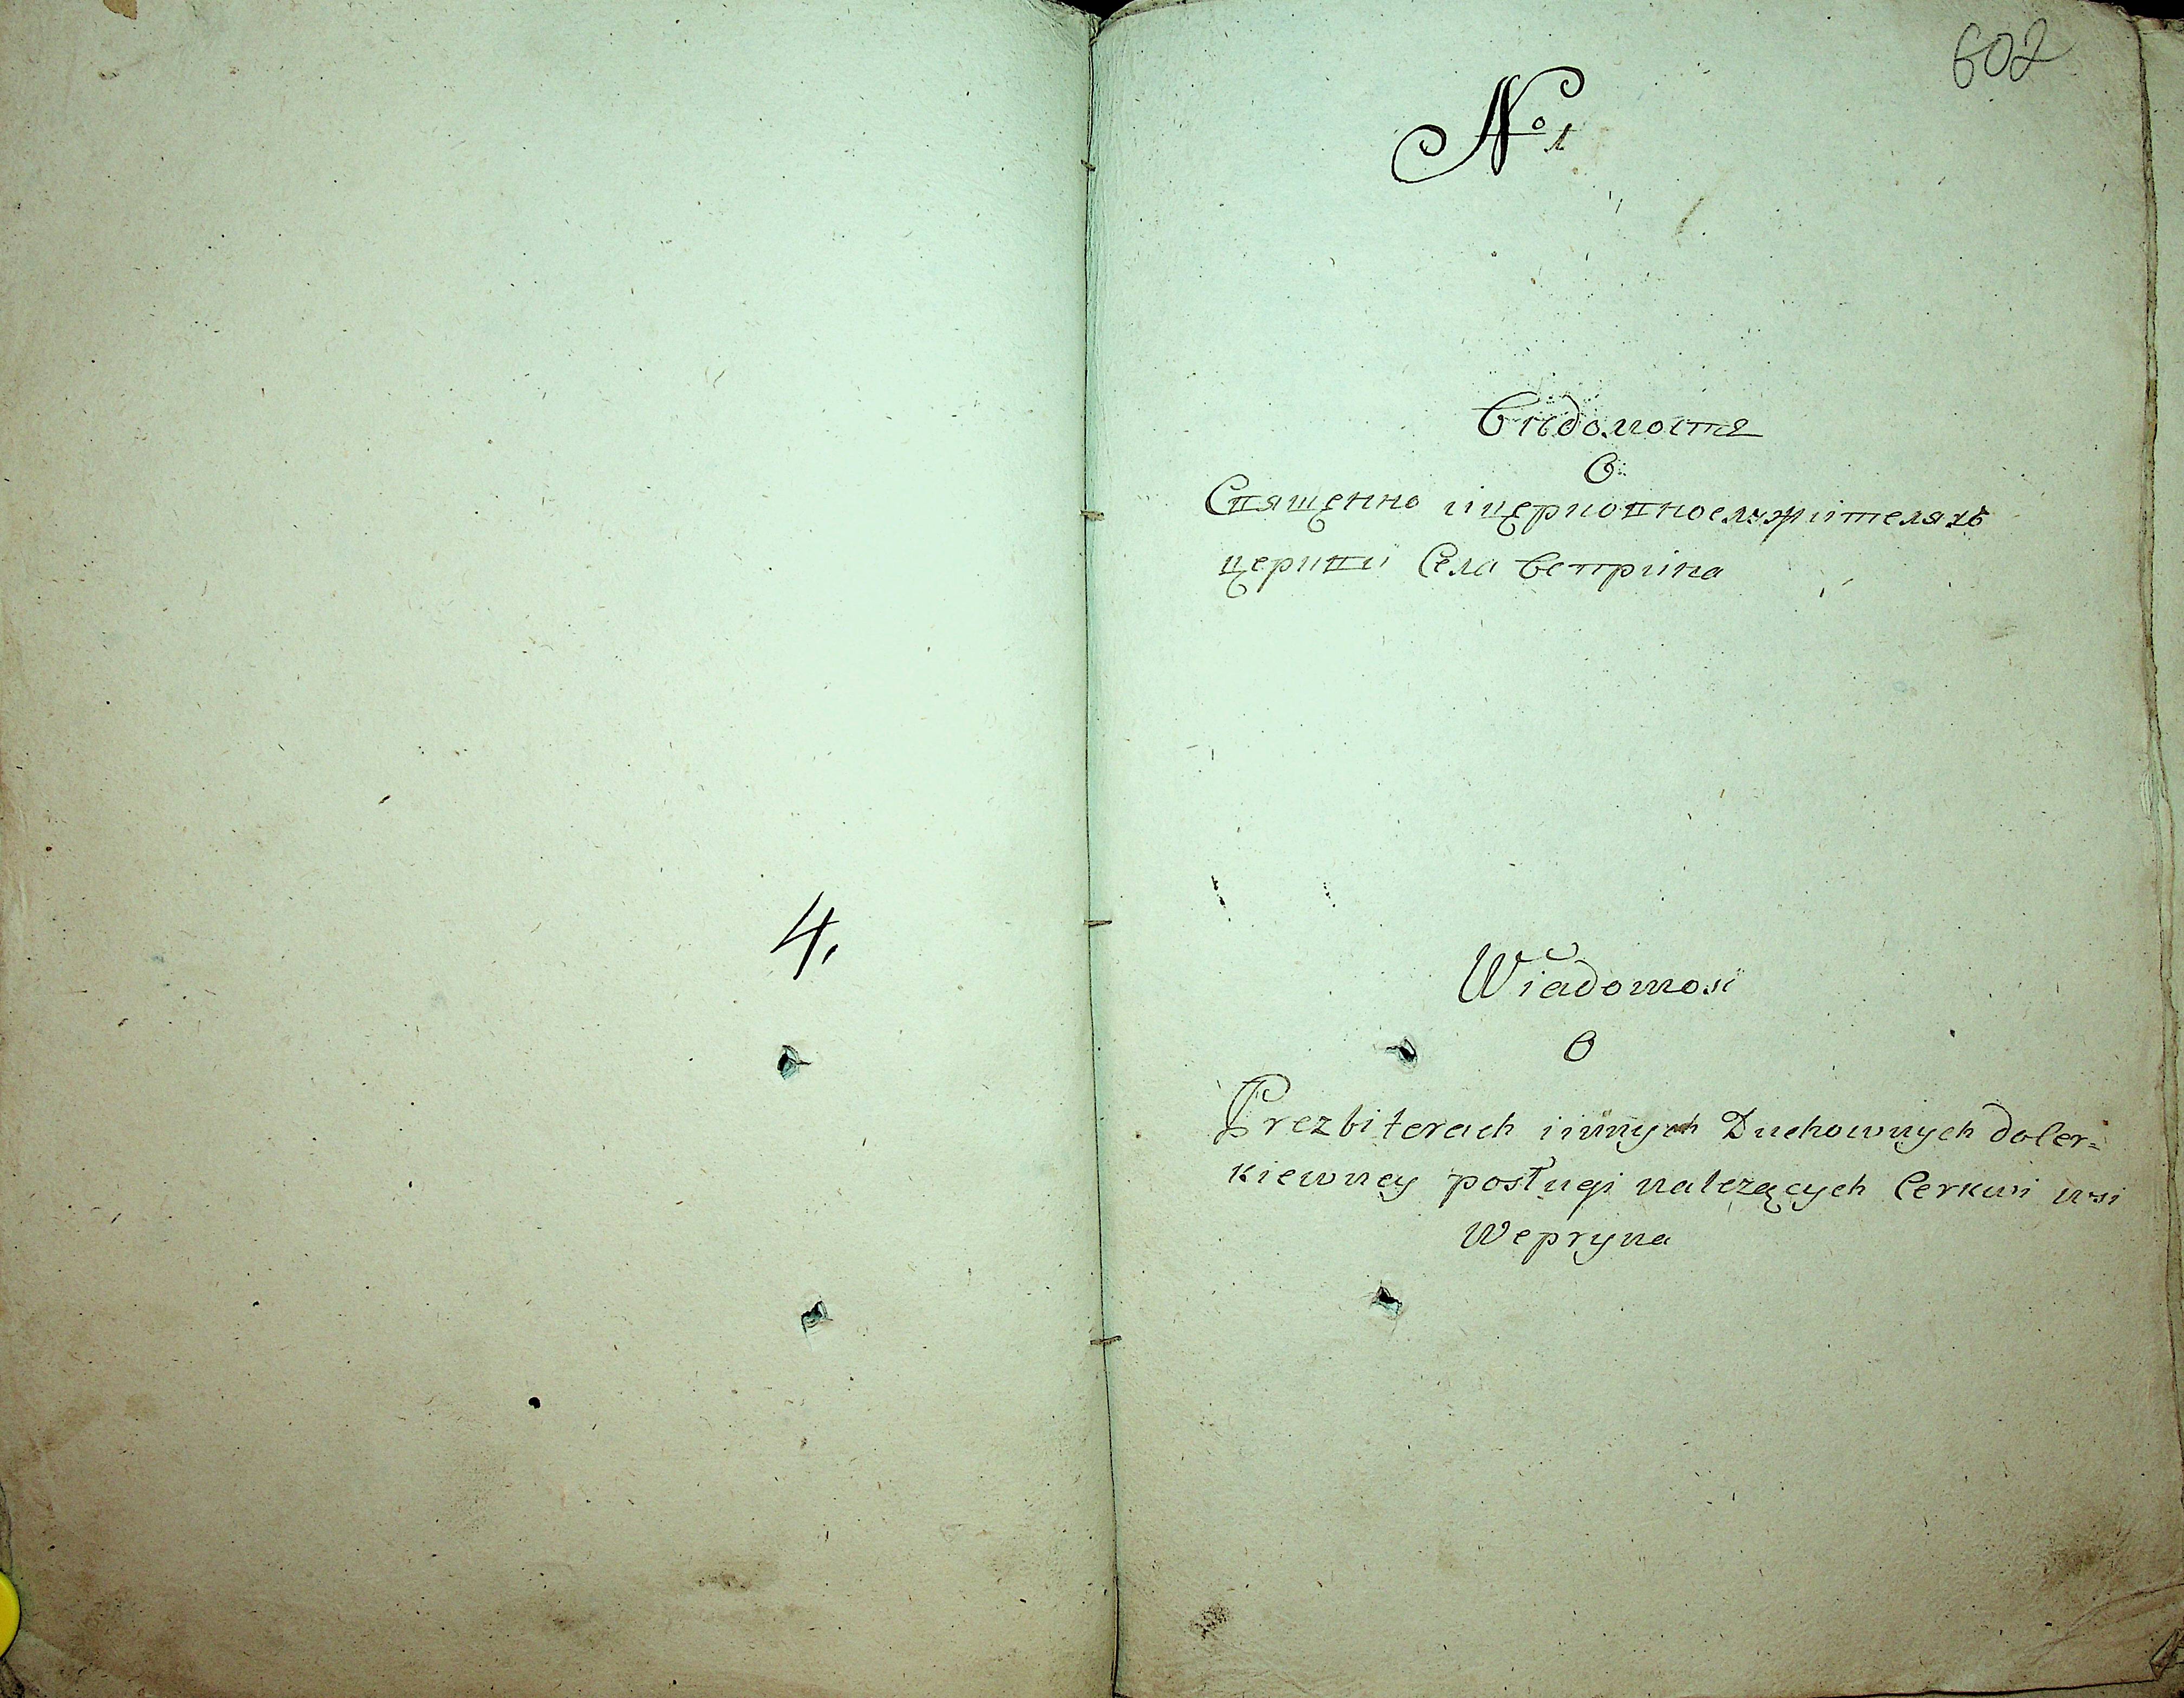 4.
602
№ 1
Вѣдомость
О
Священно ицерковнослужителяхъ
церкви Села Веприна
Wiadomość
O
Prezbiterach i innych Duchownych doCer=
kiewney posługi należących Cerkwi wsi
Wepryna